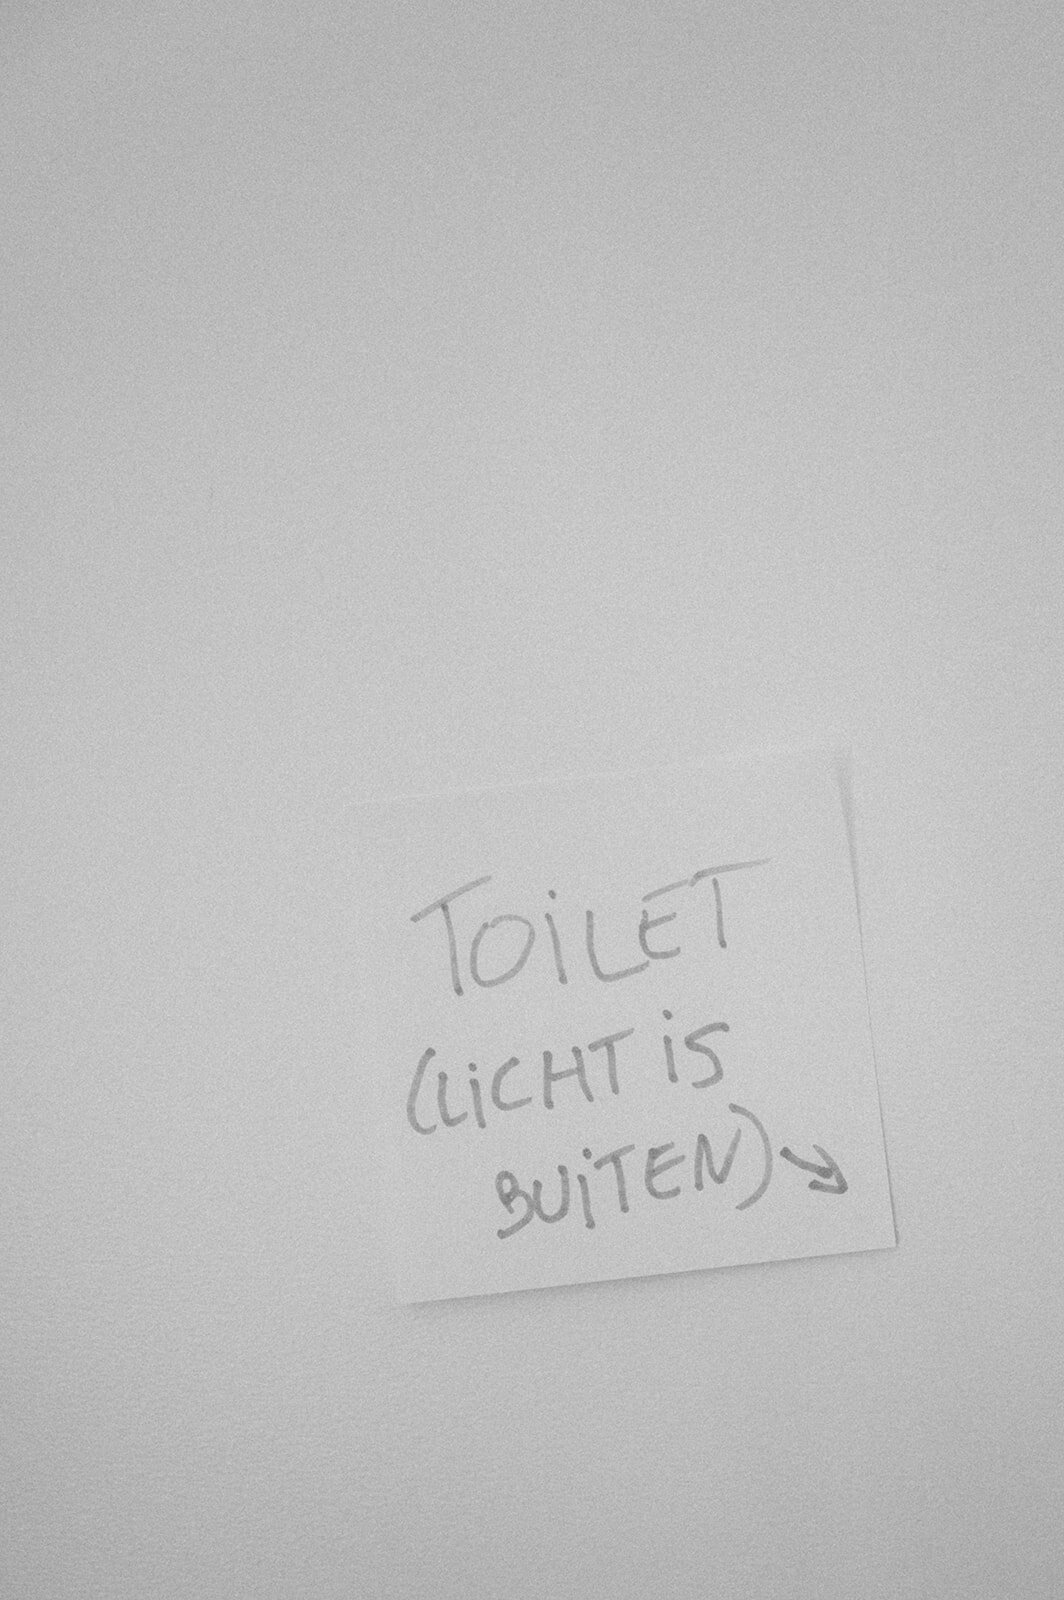 TOILET
(LICHT IS
BUITEN) ↘